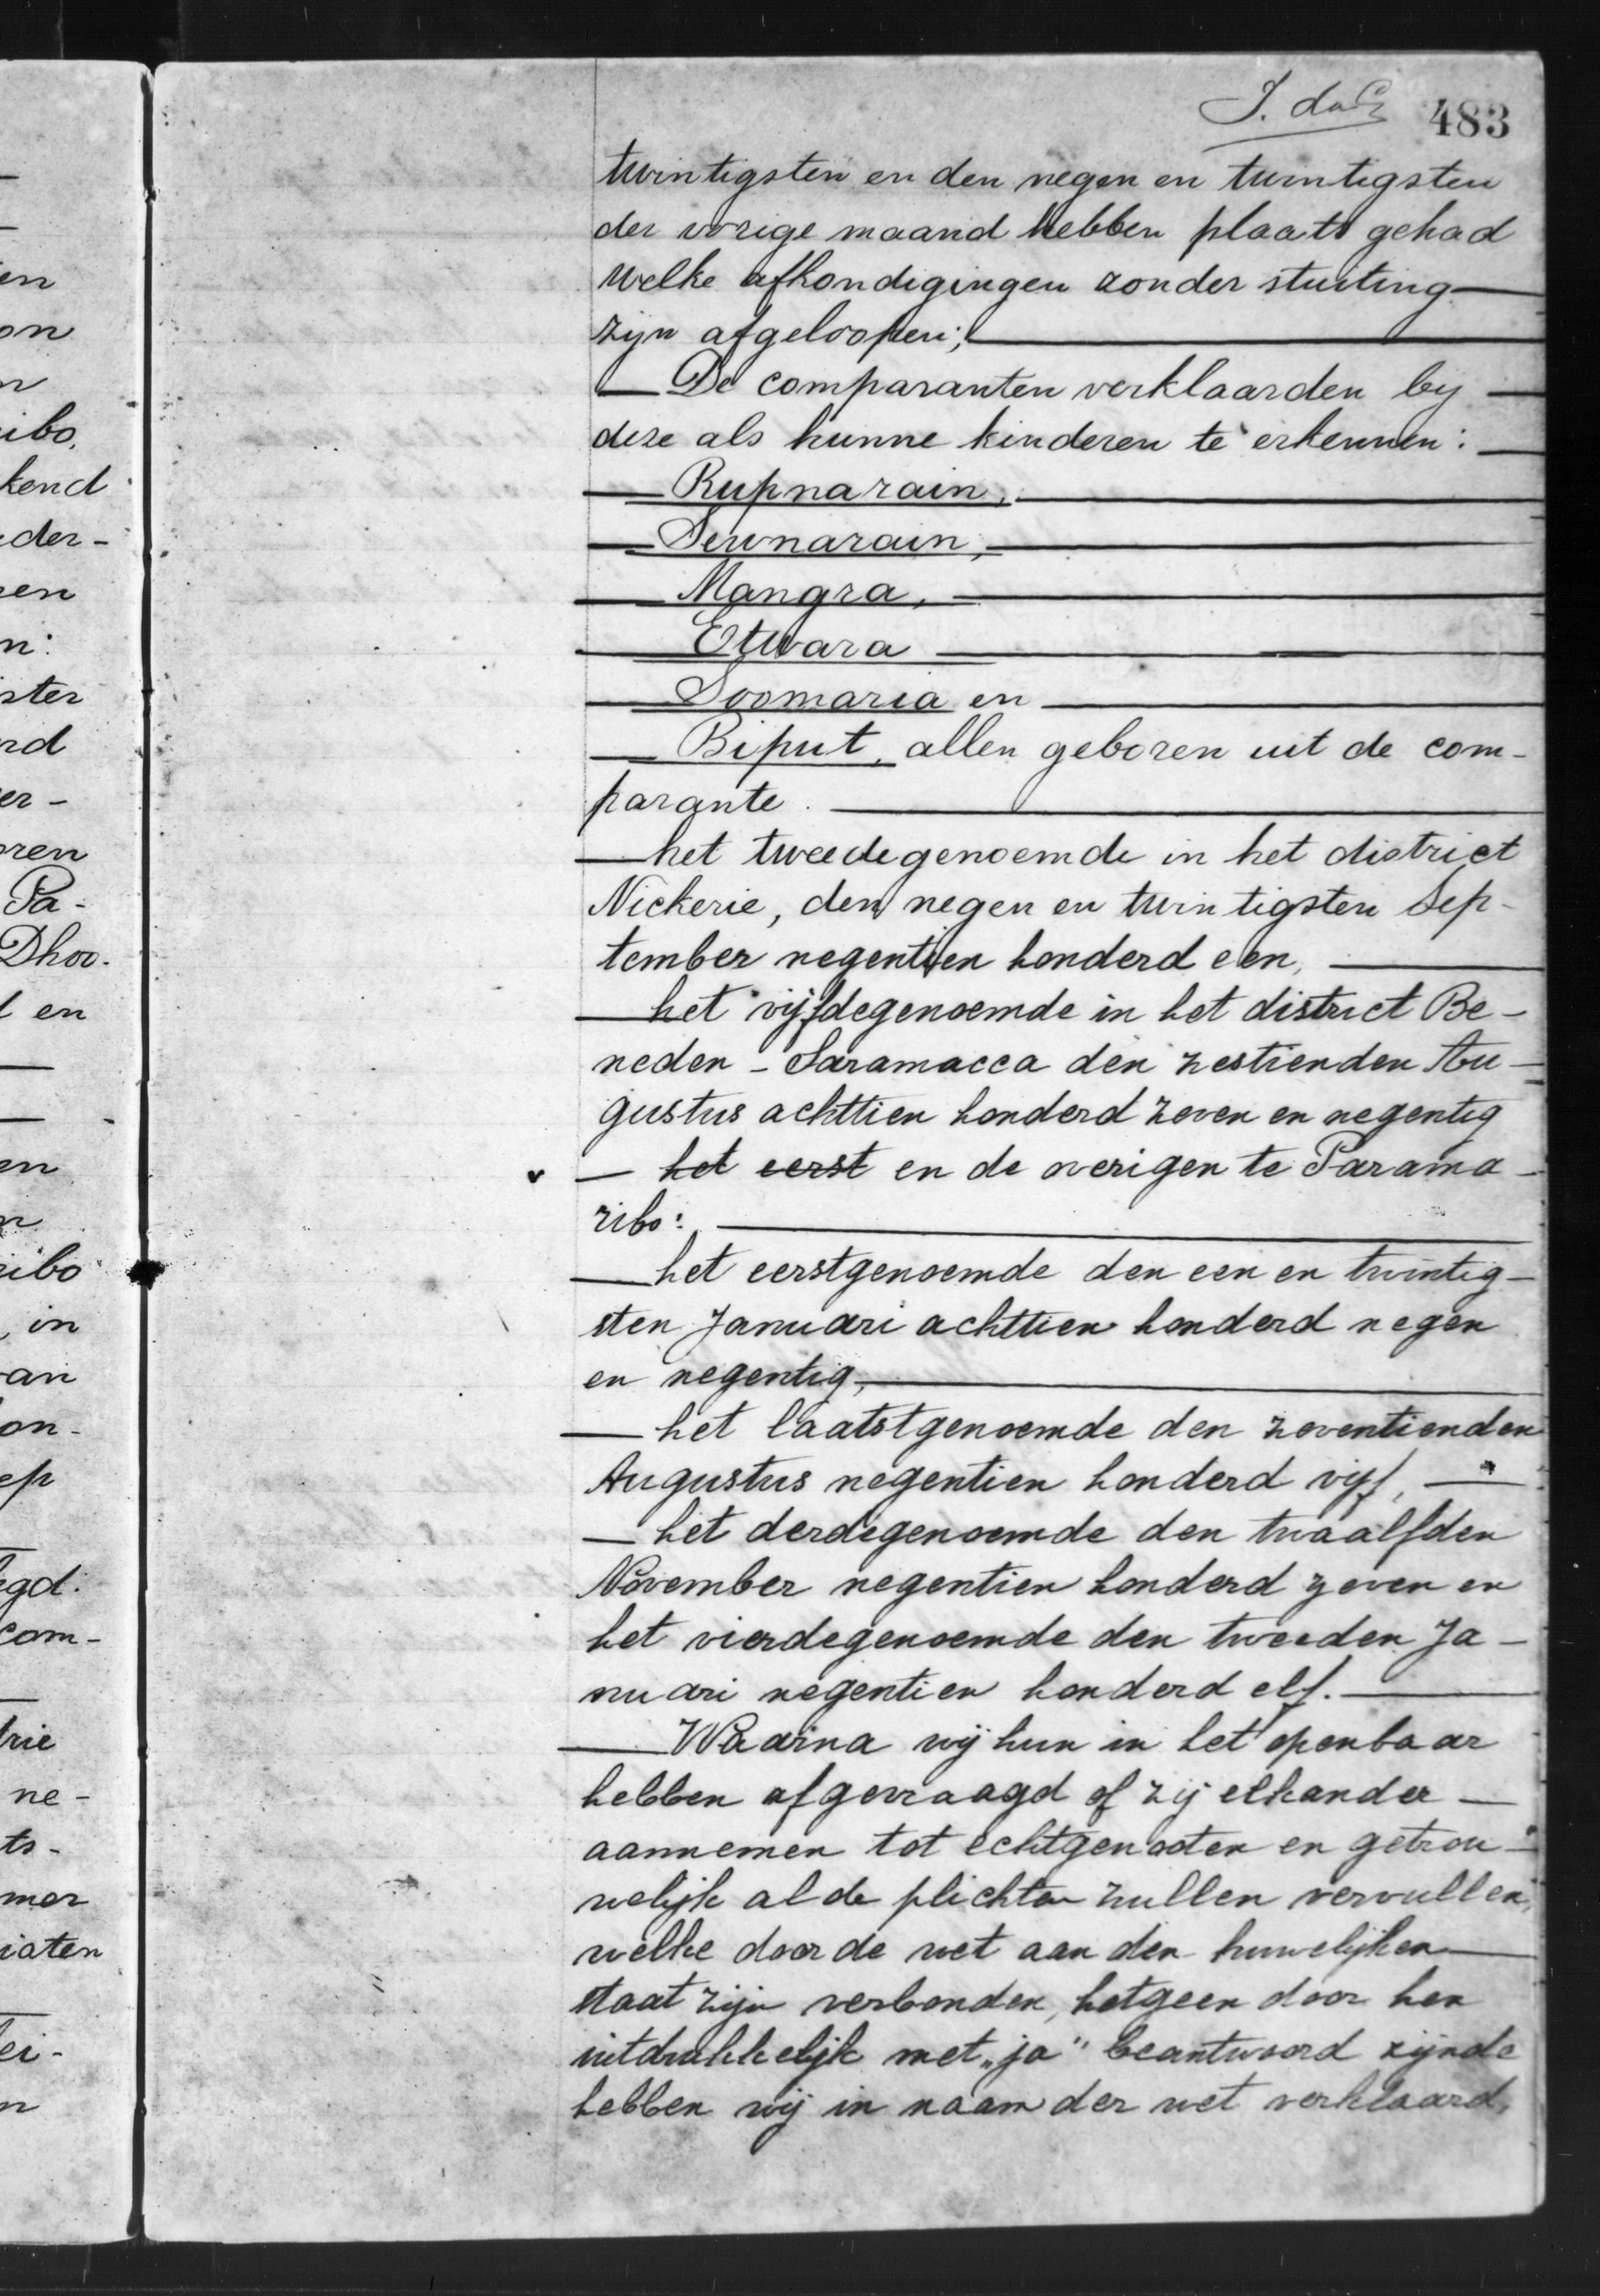 en
on
n
ibo,
kend
der-
en
n:
ster
rd
er-
oren
Pa-
Dhoo.
l en
en
n
ribo
, in
van
on-
ep
egd.
com-
rie
ne-
ts-
mer
iaten
ei-
n
483
twintigsten en den negen en twintigsten
der vorige maand hebben plaats gehad
welke afkondigingen zonder stuiting
zijn afgeloopen;
De comparanten verklaarden bij
deze als hunne kinderen te erkennen:
Rupnarain,
Sewnarain,
Mangra,
Etwara
Soomaria en
Biput, allen geboren uit de com-
parante.
het tweedegenoemde in het district
Nickerie, den negen en twintigsten Sep-
tember negentien honderd een,
het vijfdegenoemde in het district Be-
neden-Saramacca den zestienden Au-
gustus achttien honderd zeven en negentig
het eerst en de overigen te Parama-
ribo:
het eerstgenoemde den een en twintig-
sten Januari achttien honderd negen
en negentig,
het laatstgenoemde den zeventienden
Augustus negentien honderd vijf,
het derdegenoemde den twaalfden
November negentien honderd zeven en
het vierdegenoemde den tweeden Ja-
nuari negentien honderd elf.
Waarna wij hun in het openbaar
hebben afgevraagd of zij elkander
aannemen tot echtgenooten en getrou-
welijk al de plichten zullen vervullen,
welke door de wet aan den huwelijken
staat zijn verbonden, hetgeen door hen
uitdrukkelijk met „ja" beantwoord zijnde
hebben wij in naam der wet verklaard,